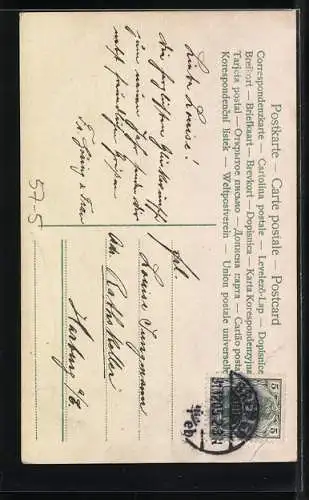 Postkarte — Carte postale — Postcard
Correspondenzkarte — Cartolina postale — Levelező-Lap — Dopisnice
Brefkort — Briefkaart — Brevkort — Dopisnica — Karta Korespondenzyjna
Tarjeta postal — Открытое письмо — Дописна карта — Cartão posta
Korespondenční lístek — Weltpostverein — Union postale universelle
Liebe Louise!
Die herzlichsten Glückwünsche
zum neuen Jahr sendet dir
nebst freundlichen Grüßen
57-5
Frl.
Louise Jungmann
Adr. Rathskeller
Harburg a/E
5
5